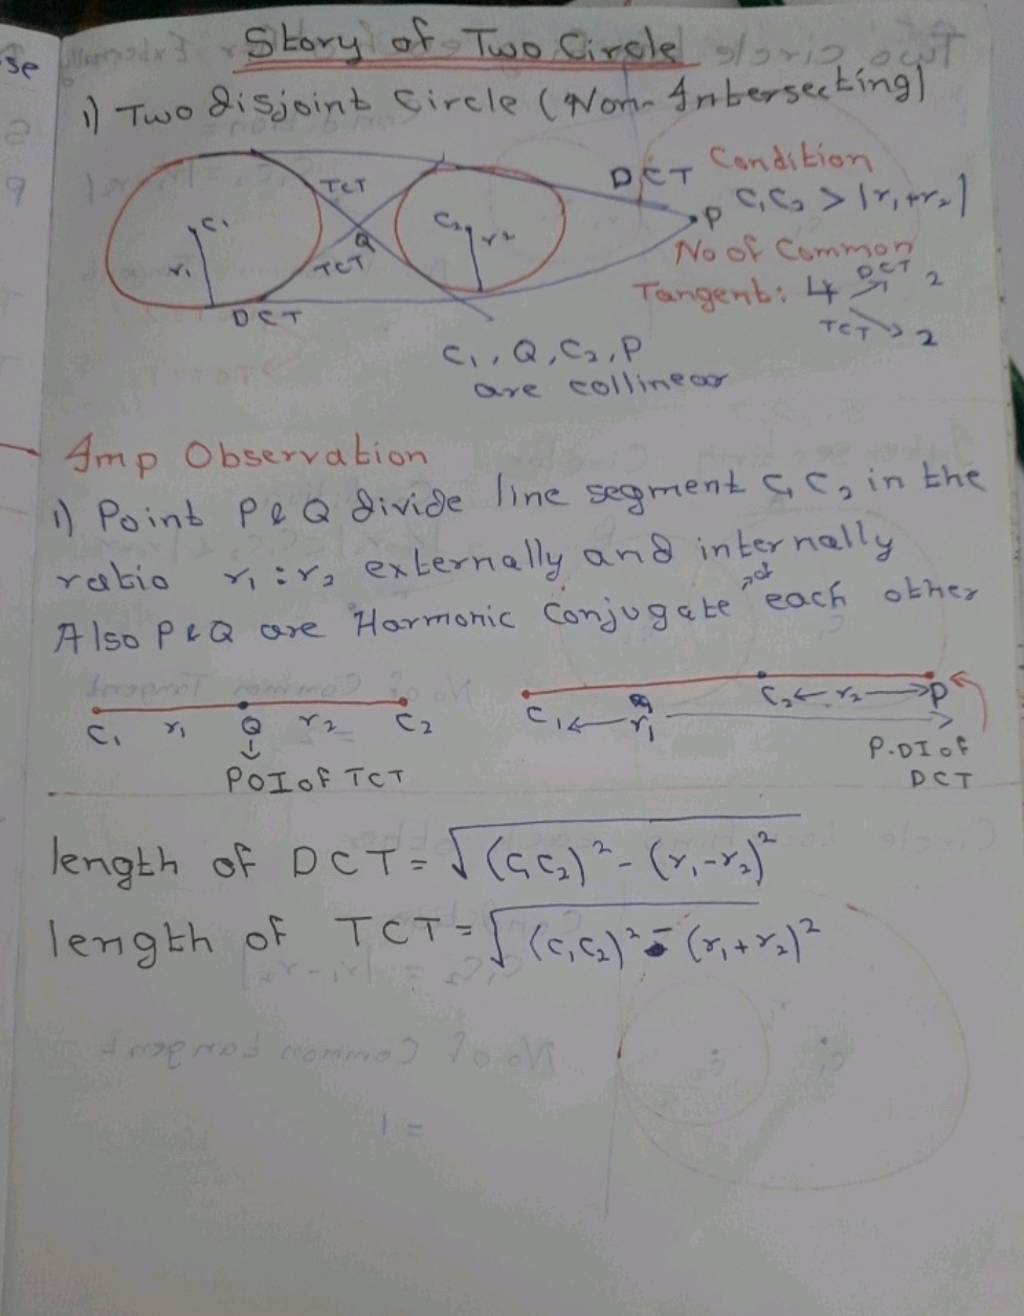 Story of Two Circle
1) Two disjoint Circle (Non-Intersecting)
TCT
DCT
Condition
C₁C₂ > |r₁+r₂|
P
C₁
C₂
r₂
Q
r₁
TCT
No of Common
Tangent: 4 DCT 2
TCT 2
DCT
C₁, Q, C₂, P
are collinear
Imp Observation
1) Point P & Q divide line segment C₁C₂ in the
ratio r₁:r₂ externally and internally
Also P & Q are Harmonic Conjugate of each other
C₁ r₁ Q r₂ C₂
POI of TCT
C₁ r₁ C₂ r₂ P
P.OI of
DCT
length of DCT = √(C₁C₂)² - (r₁-r₂)²
length of TCT = √(C₁C₂)² - (r₁+r₂)²
se
9